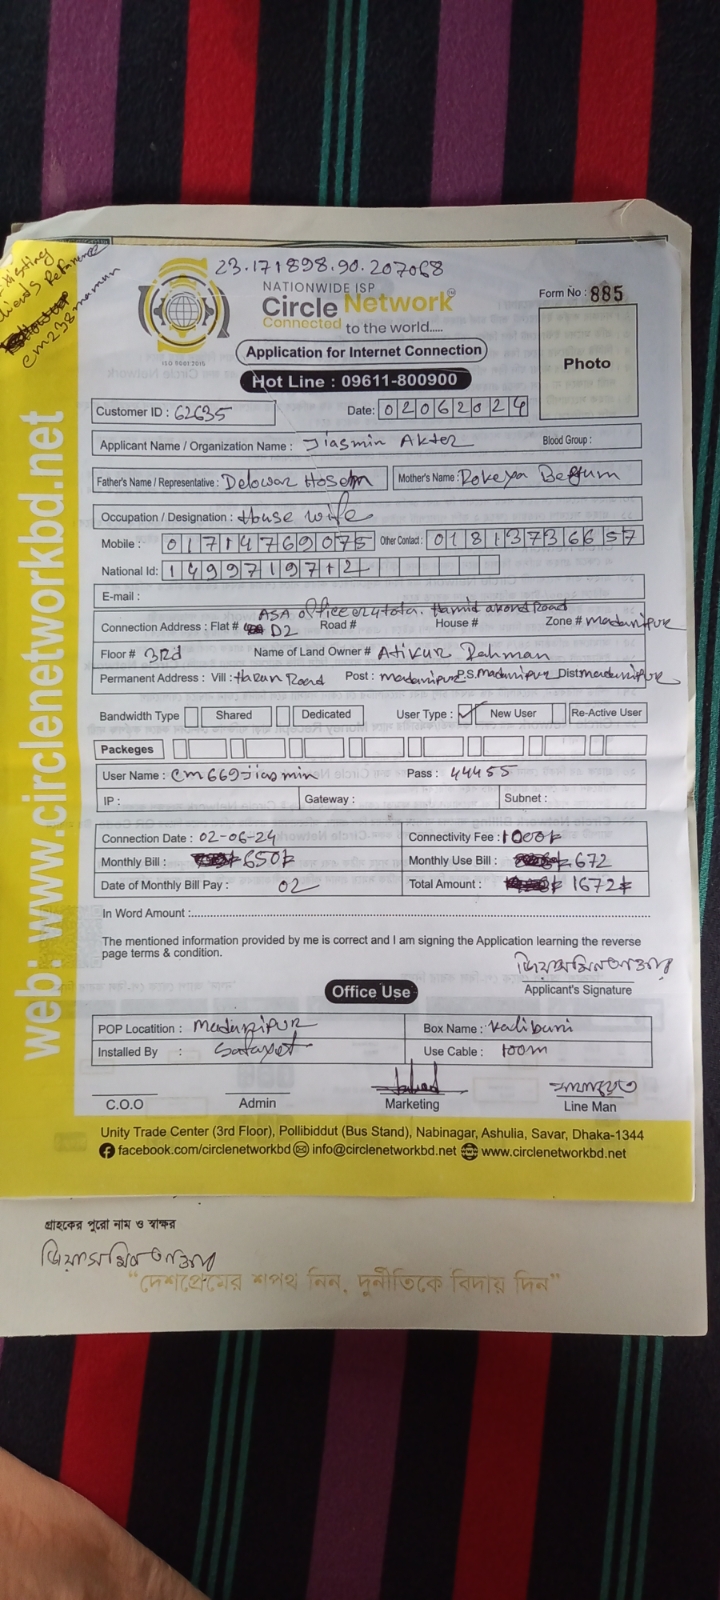 Existing
clients Reference
cm238maman
23.171898.90.207068
NATIONWIDE ISP
Circle Network
Connected to the world.....
ISO 9001:2015
Form No : 885
Application for Internet Connection
Photo
Hot Line : 09611-800900
Customer ID : 62635 Date: 02062024
Applicant Name / Organization Name : Jiasmin Akter Blood Group :
Father's Name / Representative : Delowar Hosein Mother's Name : Rokeya Begum
Occupation / Designation : House wife
Mobile : 01714769075 Other Contact : 01813736657
National Id: 1499719712
E-mail :
ASA office Hamid akond Road
Connection Address : Flat # D2 Road # House # Zone # madaripur
Floor # 3rd Name of Land Owner # Atikur Rahman
Permanent Address : Vill : Harun Road Post : madaripur P.S. Madaripur Dist madaripur
Bandwidth Type Shared Dedicated User Type : New User Re-Active User
Packeges
User Name : cm669jiasmin Pass : 44455
IP : Gateway : Subnet :
Connection Date : 02-06-24 Connectivity Fee : 1000/-
Monthly Bill : 650/- Monthly Use Bill : 672
Date of Monthly Bill Pay : 02 Total Amount : 1672/-
In Word Amount :
The mentioned information provided by me is correct and I am signing the Application learning the reverse
page terms & condition.
জিয়াসমিন আক্তার
Applicant's Signature
Office Use
POP Locatition : Madaripur Box Name : Kalibari
Installed By : Use Cable : 100m
C.O.O Admin Marketing Line Man
Unity Trade Center (3rd Floor), Pollibiddut (Bus Stand), Nabinagar, Ashulia, Savar, Dhaka-1344
facebook.com/circlenetworkbd info@circlenetworkbd.net www.circlenetworkbd.net
web: www.circlenetworkbd.net
গ্রাহকের পুরো নাম ও স্বাক্ষর
জিয়াসমিন আক্তার
“দেশপ্রেমের শপথ নিন, দুর্নীতিকে বিদায় দিন”